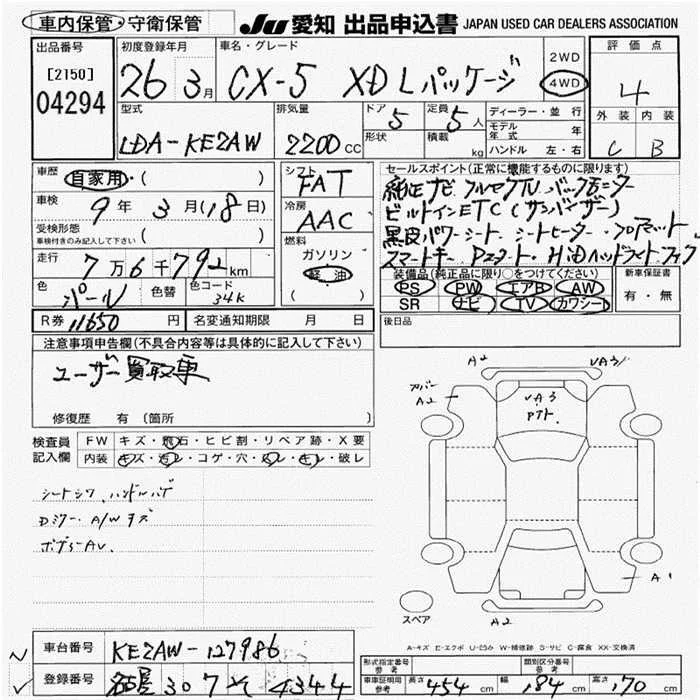 車内保管・守衛保管 JU 愛知 出品申込書 JAPAN USED CAR DEALERS ASSOCIATION
出品番号 初度登録年月 車名・グレード 2WD 評価点
[2150] 26 3月 CX-5 XD Lパッケージ 4WD 4
04294 型式 排気量 ドア 5 定員 5人 ディーラー・並行 外装 内装
LDA-KE2AW 2200cc 形状 積載 kg モデル年式 年 C B
ハンドル 左・右
車歴 自家用・( ) シフト FAT セールスポイント(正常に機能するものに限ります)
車検 9年 3月(18日) 冷房 AAC 純正ナビ フルセグTV バックモニター
受検形態 ビルトインETC(サンバイザー)
車検付きのみ記入して下さい ( ) 燃料 黒皮パワーシート シートヒーター
走行 7万6千792km ガソリン スマートキー HiDヘッドライト
軽油 装備品(純正品に限り○をつけてください) 新車保証書
色 パール 色替 色コード 34K ( ) PS PW エアB AW 有・無
SR ナビ TV カワシート
R券 11650円 名変通知期限 月 日 後日品
注意事項申告欄(不具合内容等は具体的に記入して下さい)
ユーザー買取車
修復歴 有 (箇所
A2 VA3
カバー A2 VA3
検査員 FW キズ・飛石・ヒビ割・リペア跡・X要
記入欄 内装 キズ・汚レ・コゲ・穴・スレ・キレ・破レ
シートシワ、ハンドルハゲ
Dミラー・A/Wキズ
ボディーAV.
A1
スペア A2
A-キズ E-エクボ U-凹み W-補修跡 S-サビ C-腐食 XX-交換済
車台番号 KE2AW-127986
形式指定番号 参考 類別区分番号 参考
登録番号 307 そ 4344 車庫証明用 参考 長さ 454cm 幅 184cm 高さ 170cm